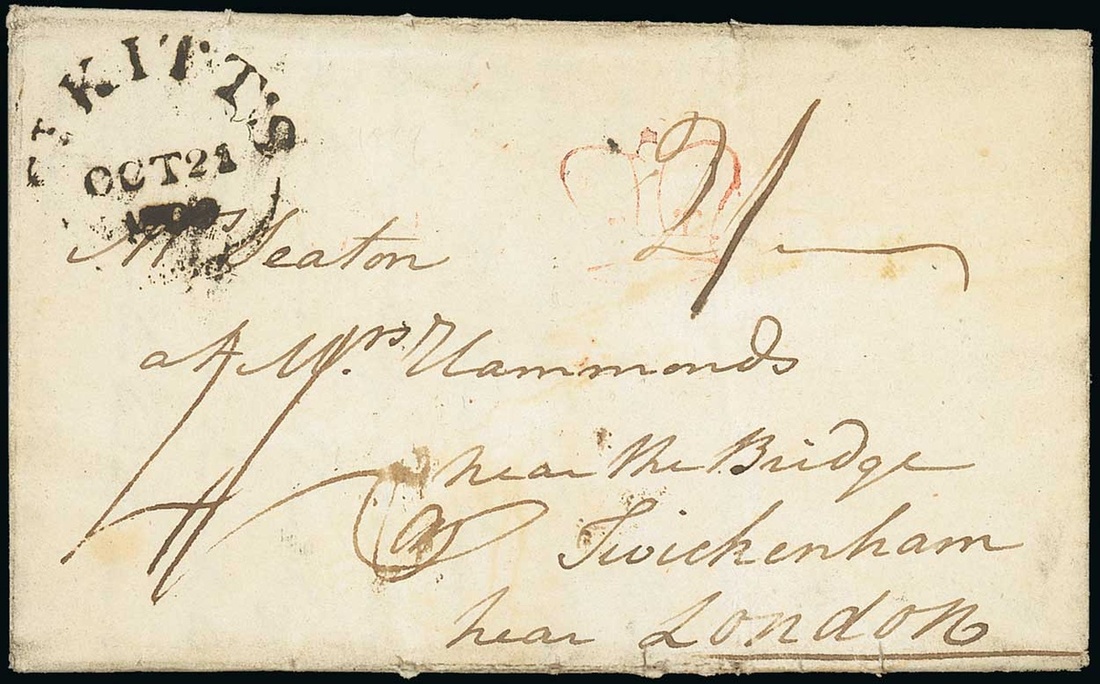 St. KITT'S
OCT 21
Mrs Seaton 2/
at Mrs. Hammonds
near the Bridge
Twickenham
near London